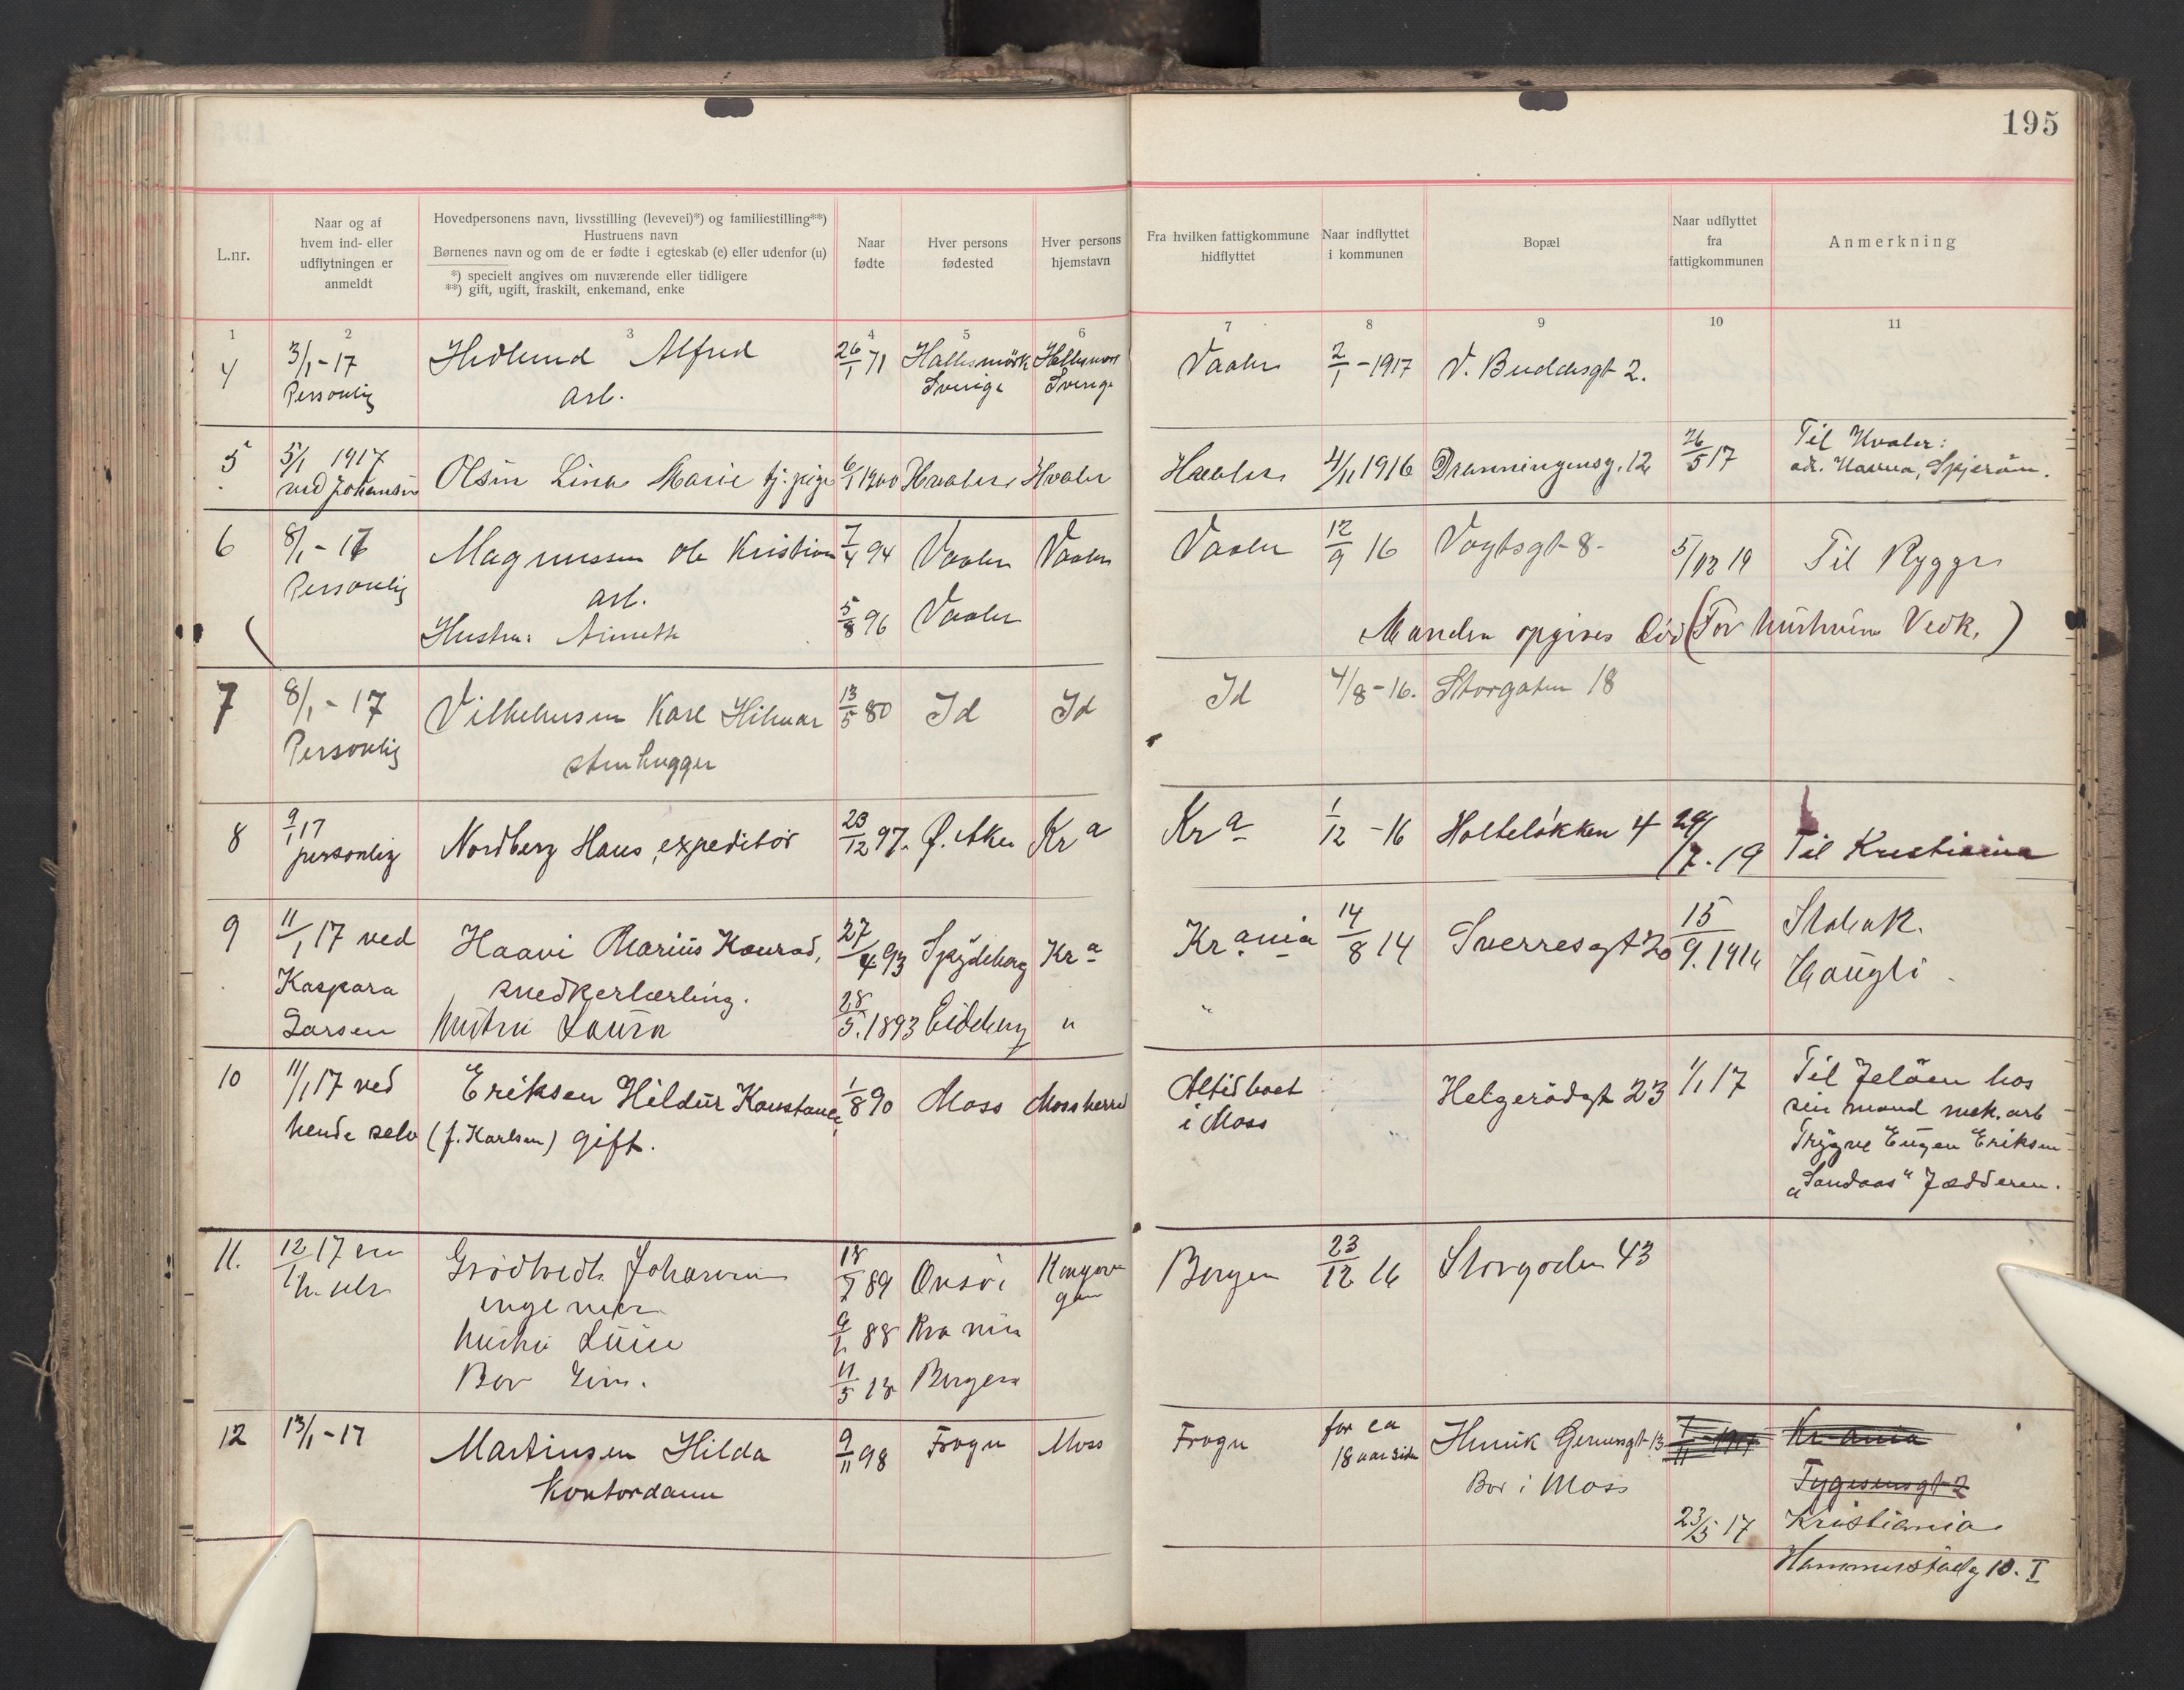 195
L.nr.
Naar og af
hvem ind- eller
udflytningen er
anmeldt
Hovedpersonens navn, livsstilling (levevei)*) og familiestilling**)
Hustruens navn
Børnenes navn og om de er fødte i egteskab (e) eller udenfor (u)
*) specielt angives om nuværende eller tidligere
**) gift, ugift, fraskilt, enkemand, enke
Naar
fødte
Hver persons
fødested
Hver persons
hjemstavn
Fra hvilken fattigkommune
hidflyttet
Naar indflyttet
i kommunen
Bopæl
Naar udflyttet
fra
fattigkommunen
Anmerkning
1 2 3 4 5 6 7 8 9 10 11
4 3/1-17 Hedlund Alfred 26/1 71 Vaaler 2/1-1917 V. Buddesgt 2.
Personlig arb. Sverige Sverige
5 5/1 1917 Olsen Lina Marie tj. pige 6/1 1900 Hvaler Hvaler 4/11 1916 Dronningensg. 12 26/5 17 Til Hvaler:
ved Johansen adr. Spjerøen.
6 8/1-17 Magnussen Ole Kristian 7/4 94 Vaaler Vaaler Vaaler 12/9 16 Vogtsgt 8 5/12 19 Til Rygge
Personlig arb.
Hustru: 5/8 96 Vaaler Manden opgives død (For hustruens Vedk.)
7 8/1-17 Vilhelmsen Karl Hilmar 13/5 80 Id Id Id 4/8-16. Storgaten 18
Personlig stenhugger
8 9/1 17 Nordberg Hans, expeditør 23/12 97. Ø. Aker Kra Kra 1/12-16 Holteløkken 4 29/7.19 Til Kristiania
personlig
9 11/1 17 ved Haavi Marius Konrad, 27/4 93 Spydeberg Kra Krania 14/8 14 Sverresgt 20 15/9. 1916
Kaspara snedkerlærling. Haugli
Larsen hustru Laura 28/5. 1893 Eidsberg "
10 11/1 17 ved Eriksen Hildur Konstance, 1/8 90 Moss Mossherred Altid boet Helgerødgt 23 1/1 17 Til Jeløen hos
hende selv (f. Karlsen) gift. i Moss sin mand mek. arb
Trygve Eugen Eriksen
"Sandaas" Jædderen.
11. 12/1 17 Johannes 89 Onsø Bergen 23/12 16 Storgaden 43
h. selv ingeniør
hustru 88 Krania
Barn 11/5 13 Bergen
12 13/1-17 Martinsen Hilda 9/11 98 Frogn Moss Frogn for ca Henrik Gernersgt 13 7/11-1917 Krania
Kontordame 18 aar siden Bor i Moss Tygesensgt 2
23/5 17 Kristiania
Hammerstadg 10. I